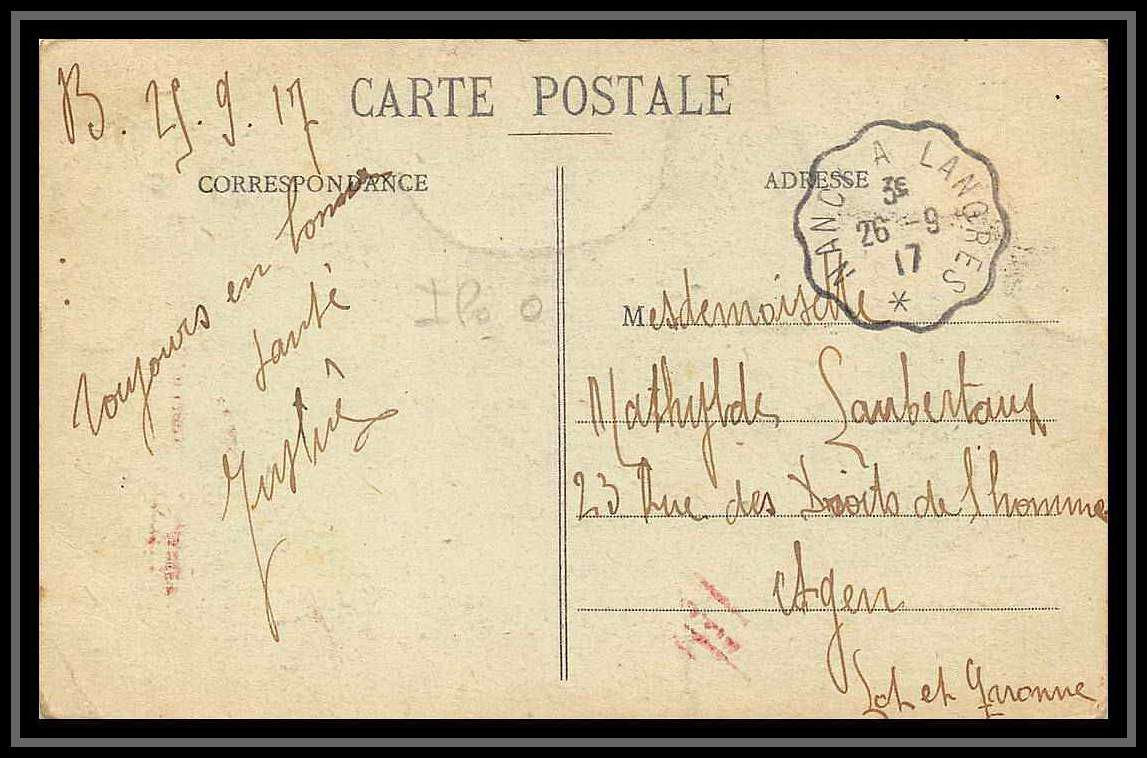 B. 25.9.17
CARTE POSTALE
CORRESPONDANCE
toujours en bonne
santé
ADRESSE
NANCY A LANGRES
3E
26 - 9
17
*
Mesdemoiselle
Mathylde Laubertaux
23 Rue des Droits de l'homme
Agen
Lot et Garonne